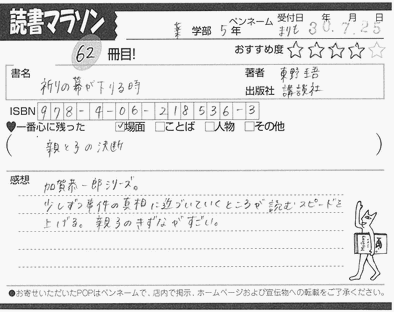 読書マラソン
62 冊目!
薬 学部 5年
ペンネーム まりも
受付日 30年 7月 25日
おすすめ度 ☆☆☆☆☆
書名 祈りの幕が下りる時
著者 東野圭吾
出版社 講談社
ISBN 978-4-06-218536-3
♥一番心に残った ☑場面 □ことば □人物 □その他
( 親と子の決断 )
感想
加賀恭一郎シリーズ。
少しずつ事件の真相に近づいていくところが読むスピードを
上げる。親子のきずながすごい。
●お寄せいただいたPOPはペンネームで、店内で掲示、ホームページおよび宣伝物への転載をご了承ください。